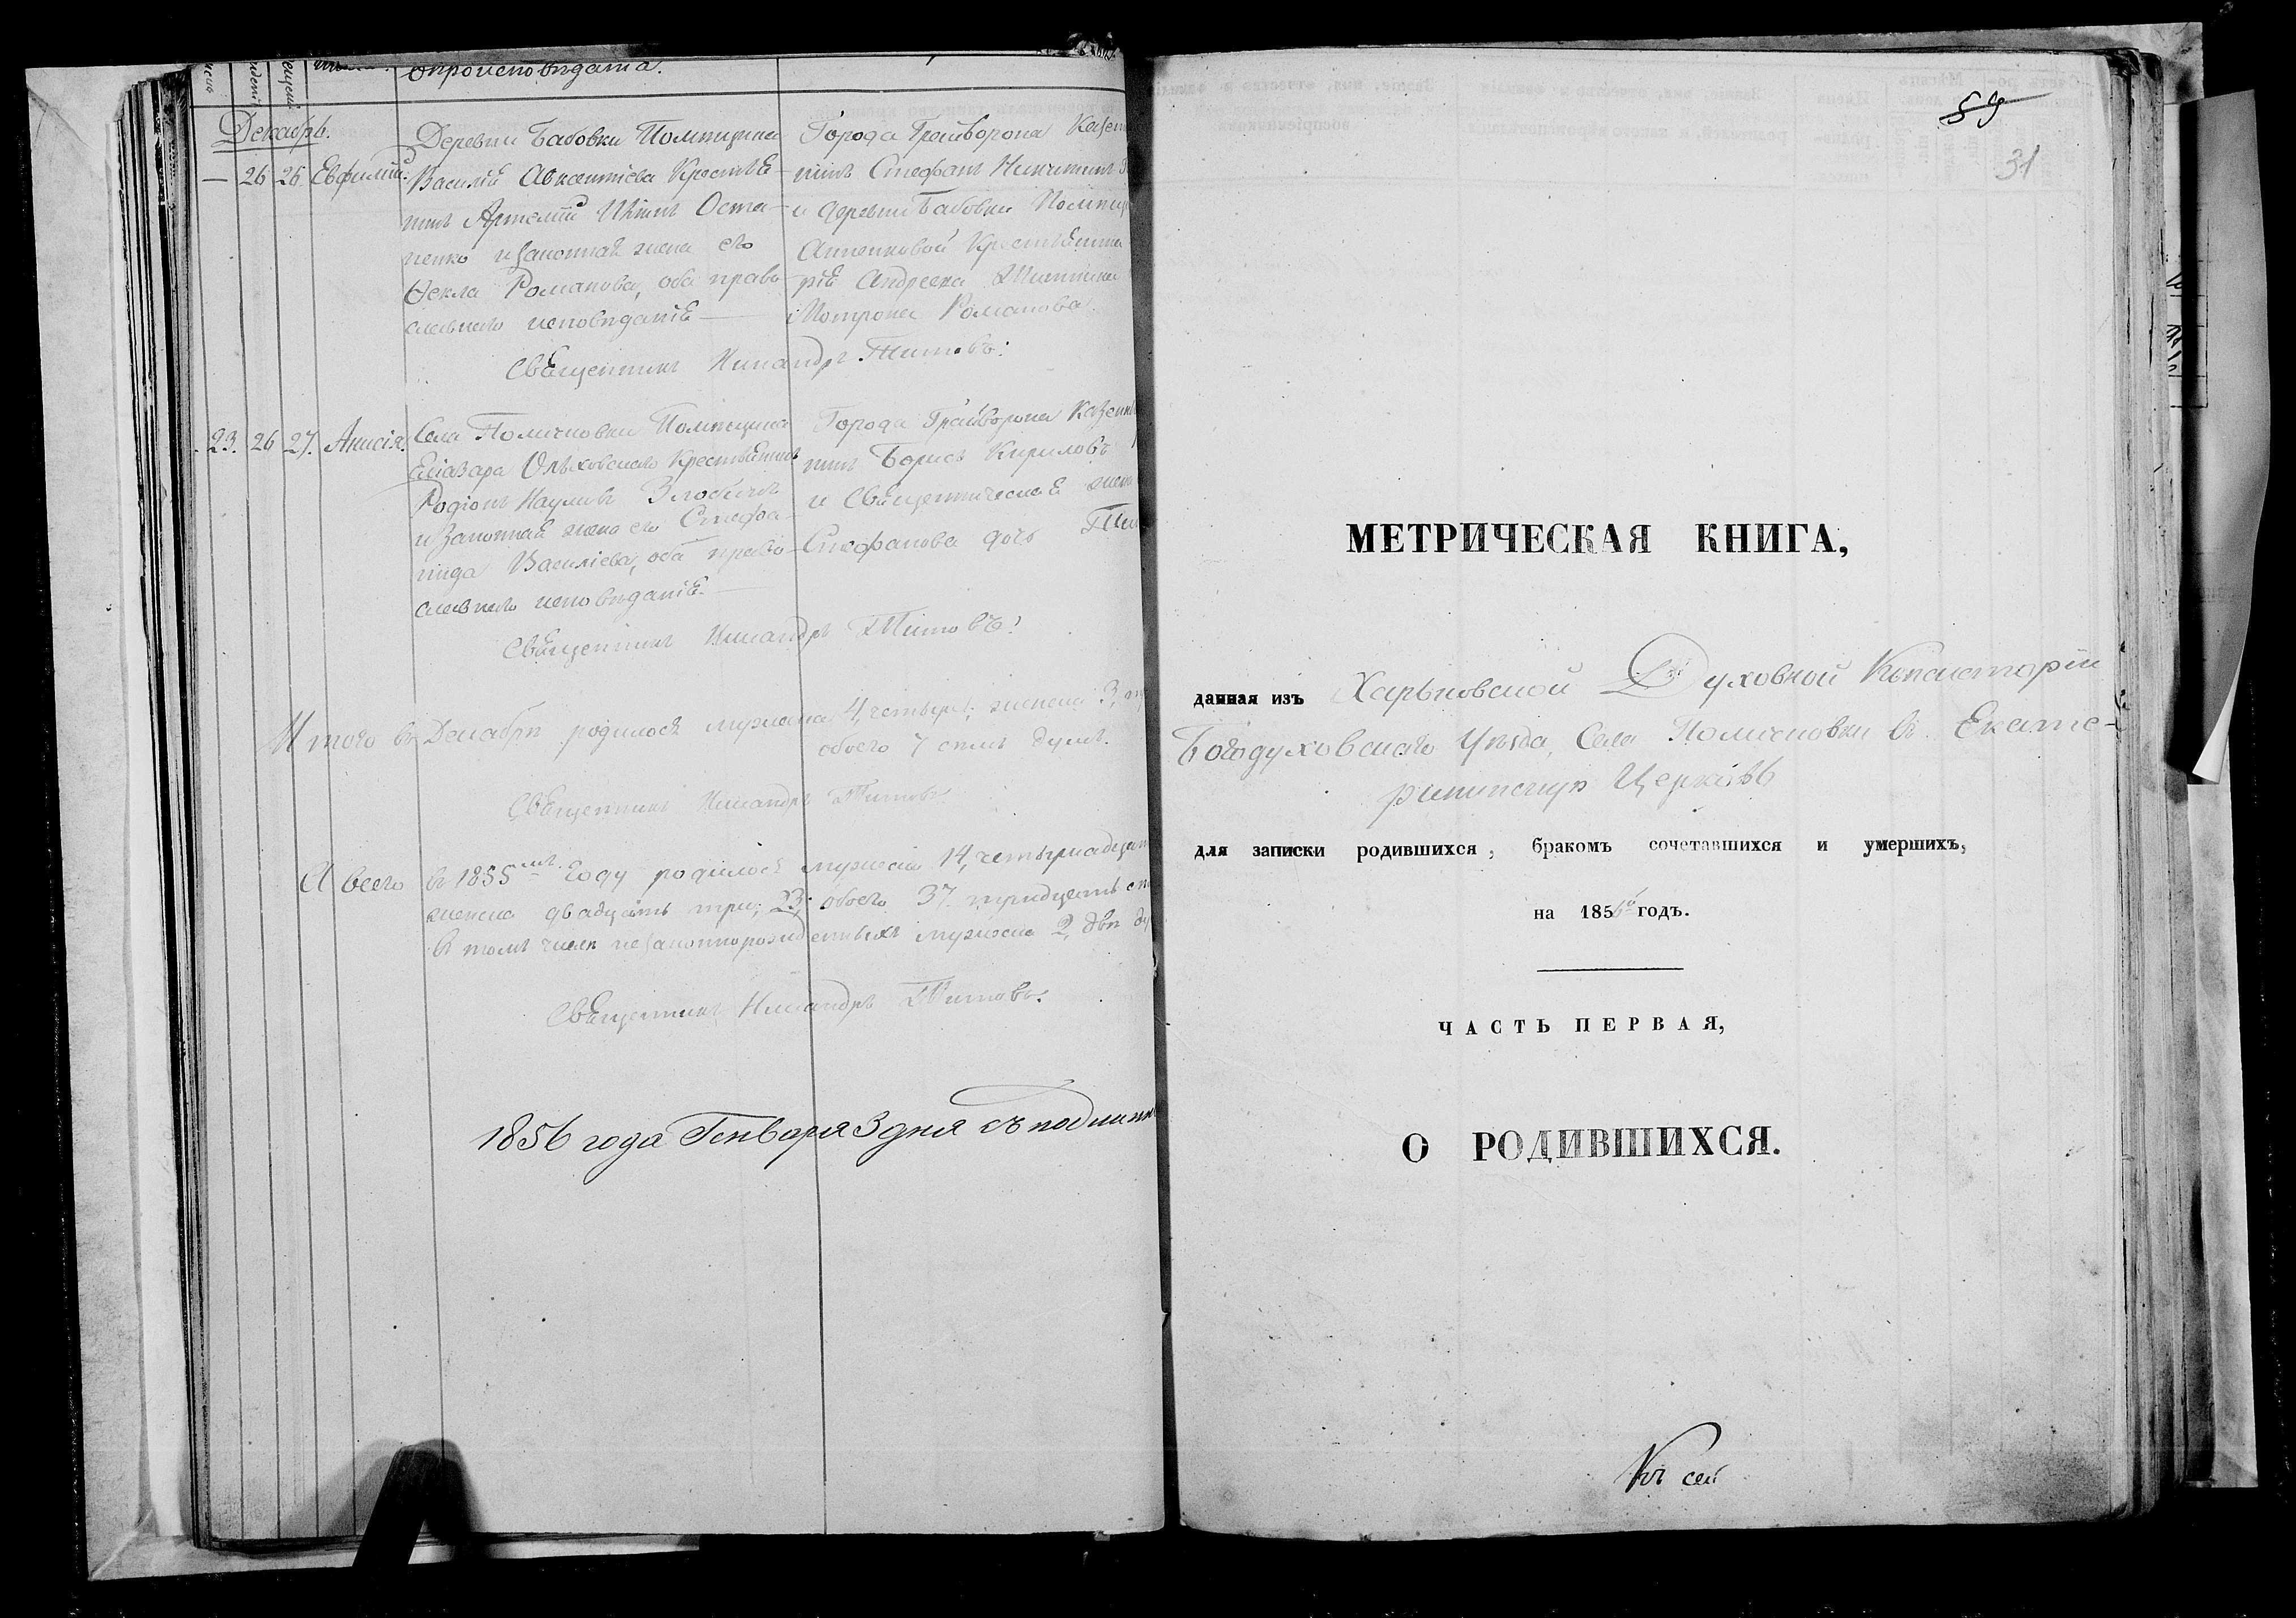 вѣроисповѣдага.
Декабрь.
— 26 26 Евфимій.
Деревни Бабовки Помѣщика
Василія Авксентіева Крестья-
нинъ Артемій Остап-
пенко и законная жена его
Ѳекла Романова, оба право-
славнаго исповѣданія —
Города Грайворона Казен
нинъ Стефанъ Никитинъ
и деревни Бабовки Помѣщи
Анненковой Крестьянина
рія Андреева
Мотрона Романова.
Священникъ Никандръ Титовъ.
23. 26 27. Анисія.
Села Поличковки Помѣщика
Еліазара Ольховскаго Крестьянинъ
Родіонъ Наумовъ Злобинъ
и законная жена его Стефа-
нида Василіева, оба право-
славнаго исповѣданія. —
Города Грайворона Казенн
нинъ Борисъ Кириловъ
и Священническая жен
Стефанова дочь Тит
Священникъ Никандръ Титовъ.
Итого въ Декабрѣ родилось мужеска 4, четыре; женска 3,
обоего 7 семь душъ.
Священникъ Никандръ Титовъ
А всего въ 1855мъ году родилось мужеска 14, четырнадцать
женска двадцать три, 23, обоего 37. тридцать се
въ томъ числѣ незаконнорожденныхъ мужеска 2, двѣ ду
Священникъ Никандръ Титовъ.
1856 года Генваря 3 дня съ подлинн
59
31
МЕТРИЧЕСКАЯ КНИГА,
данная изъ Харьковской Духовной Консисторіи
Богодуховскаго Уѣзда, Села Поличковки въ Екате-
рининскую Церковь
для записки родившихся, бракомъ сочетавшихся и умершихъ,
на 1856й годъ.
ЧАСТЬ ПЕРВАЯ,
О РОДИВШИХСЯ.
Къ сей